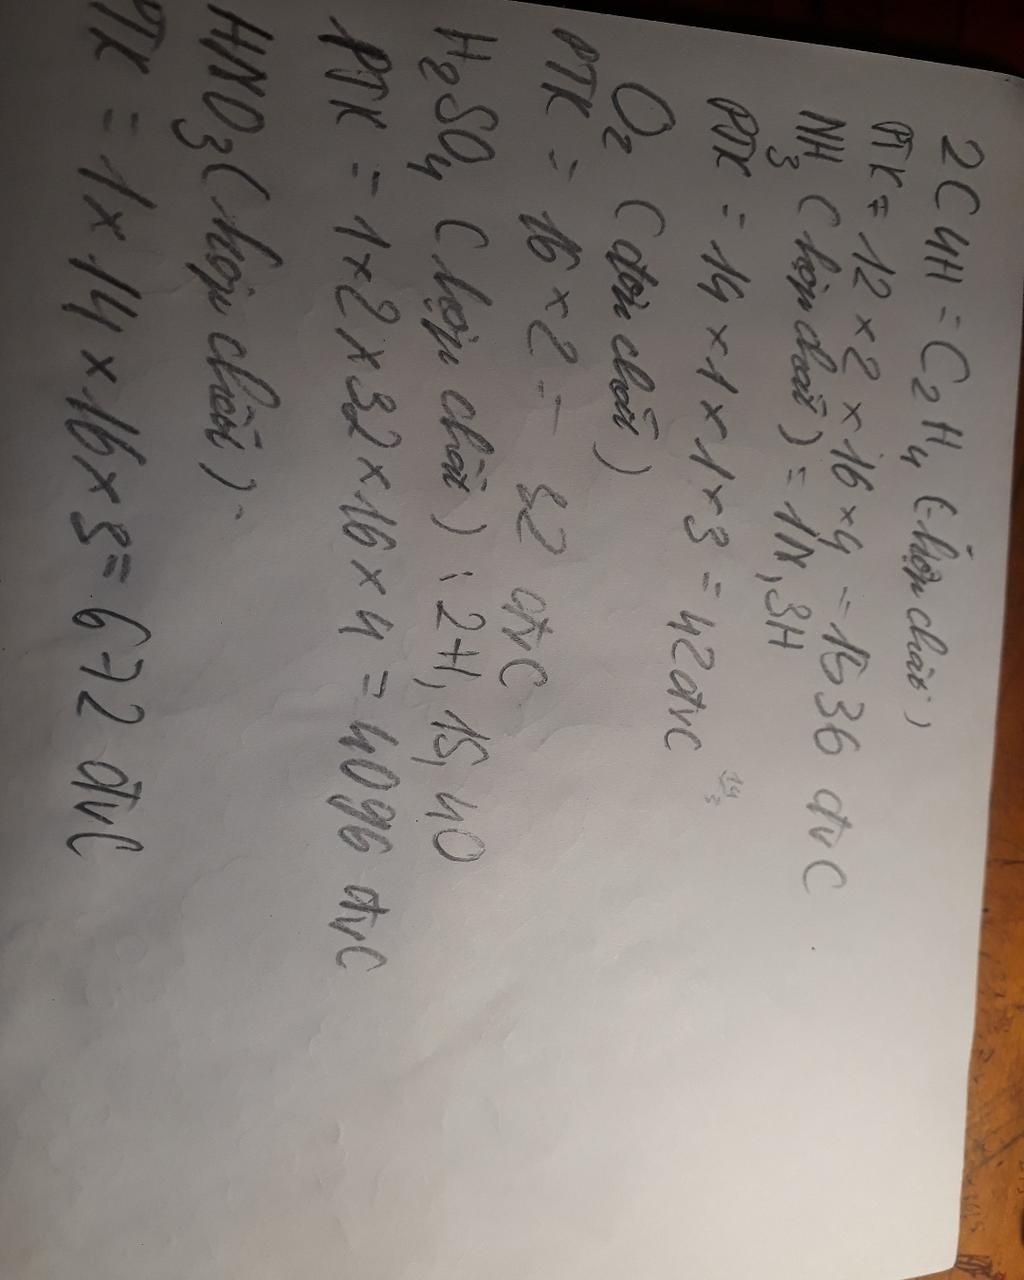 2C4H = C2H4 (hợp chất)
PTK = 12 x 2 x 16 x 4 = 1536 đvC
NH3 (hợp chất) = 1N, 3H
PTK = 14 x 1 x 1 x 3 = 42 đvC
O2 (đơn chất)
PTK = 16 x 2 = 32 đvC
H2SO4 (hợp chất) : 2H, 1S, 4O
PTK = 1 x 2 x 32 x 16 x 4 = 4096 đvC
HNO3 (hợp chất)
PTK = 1 x 14 x 16 x 3 = 672 đvC